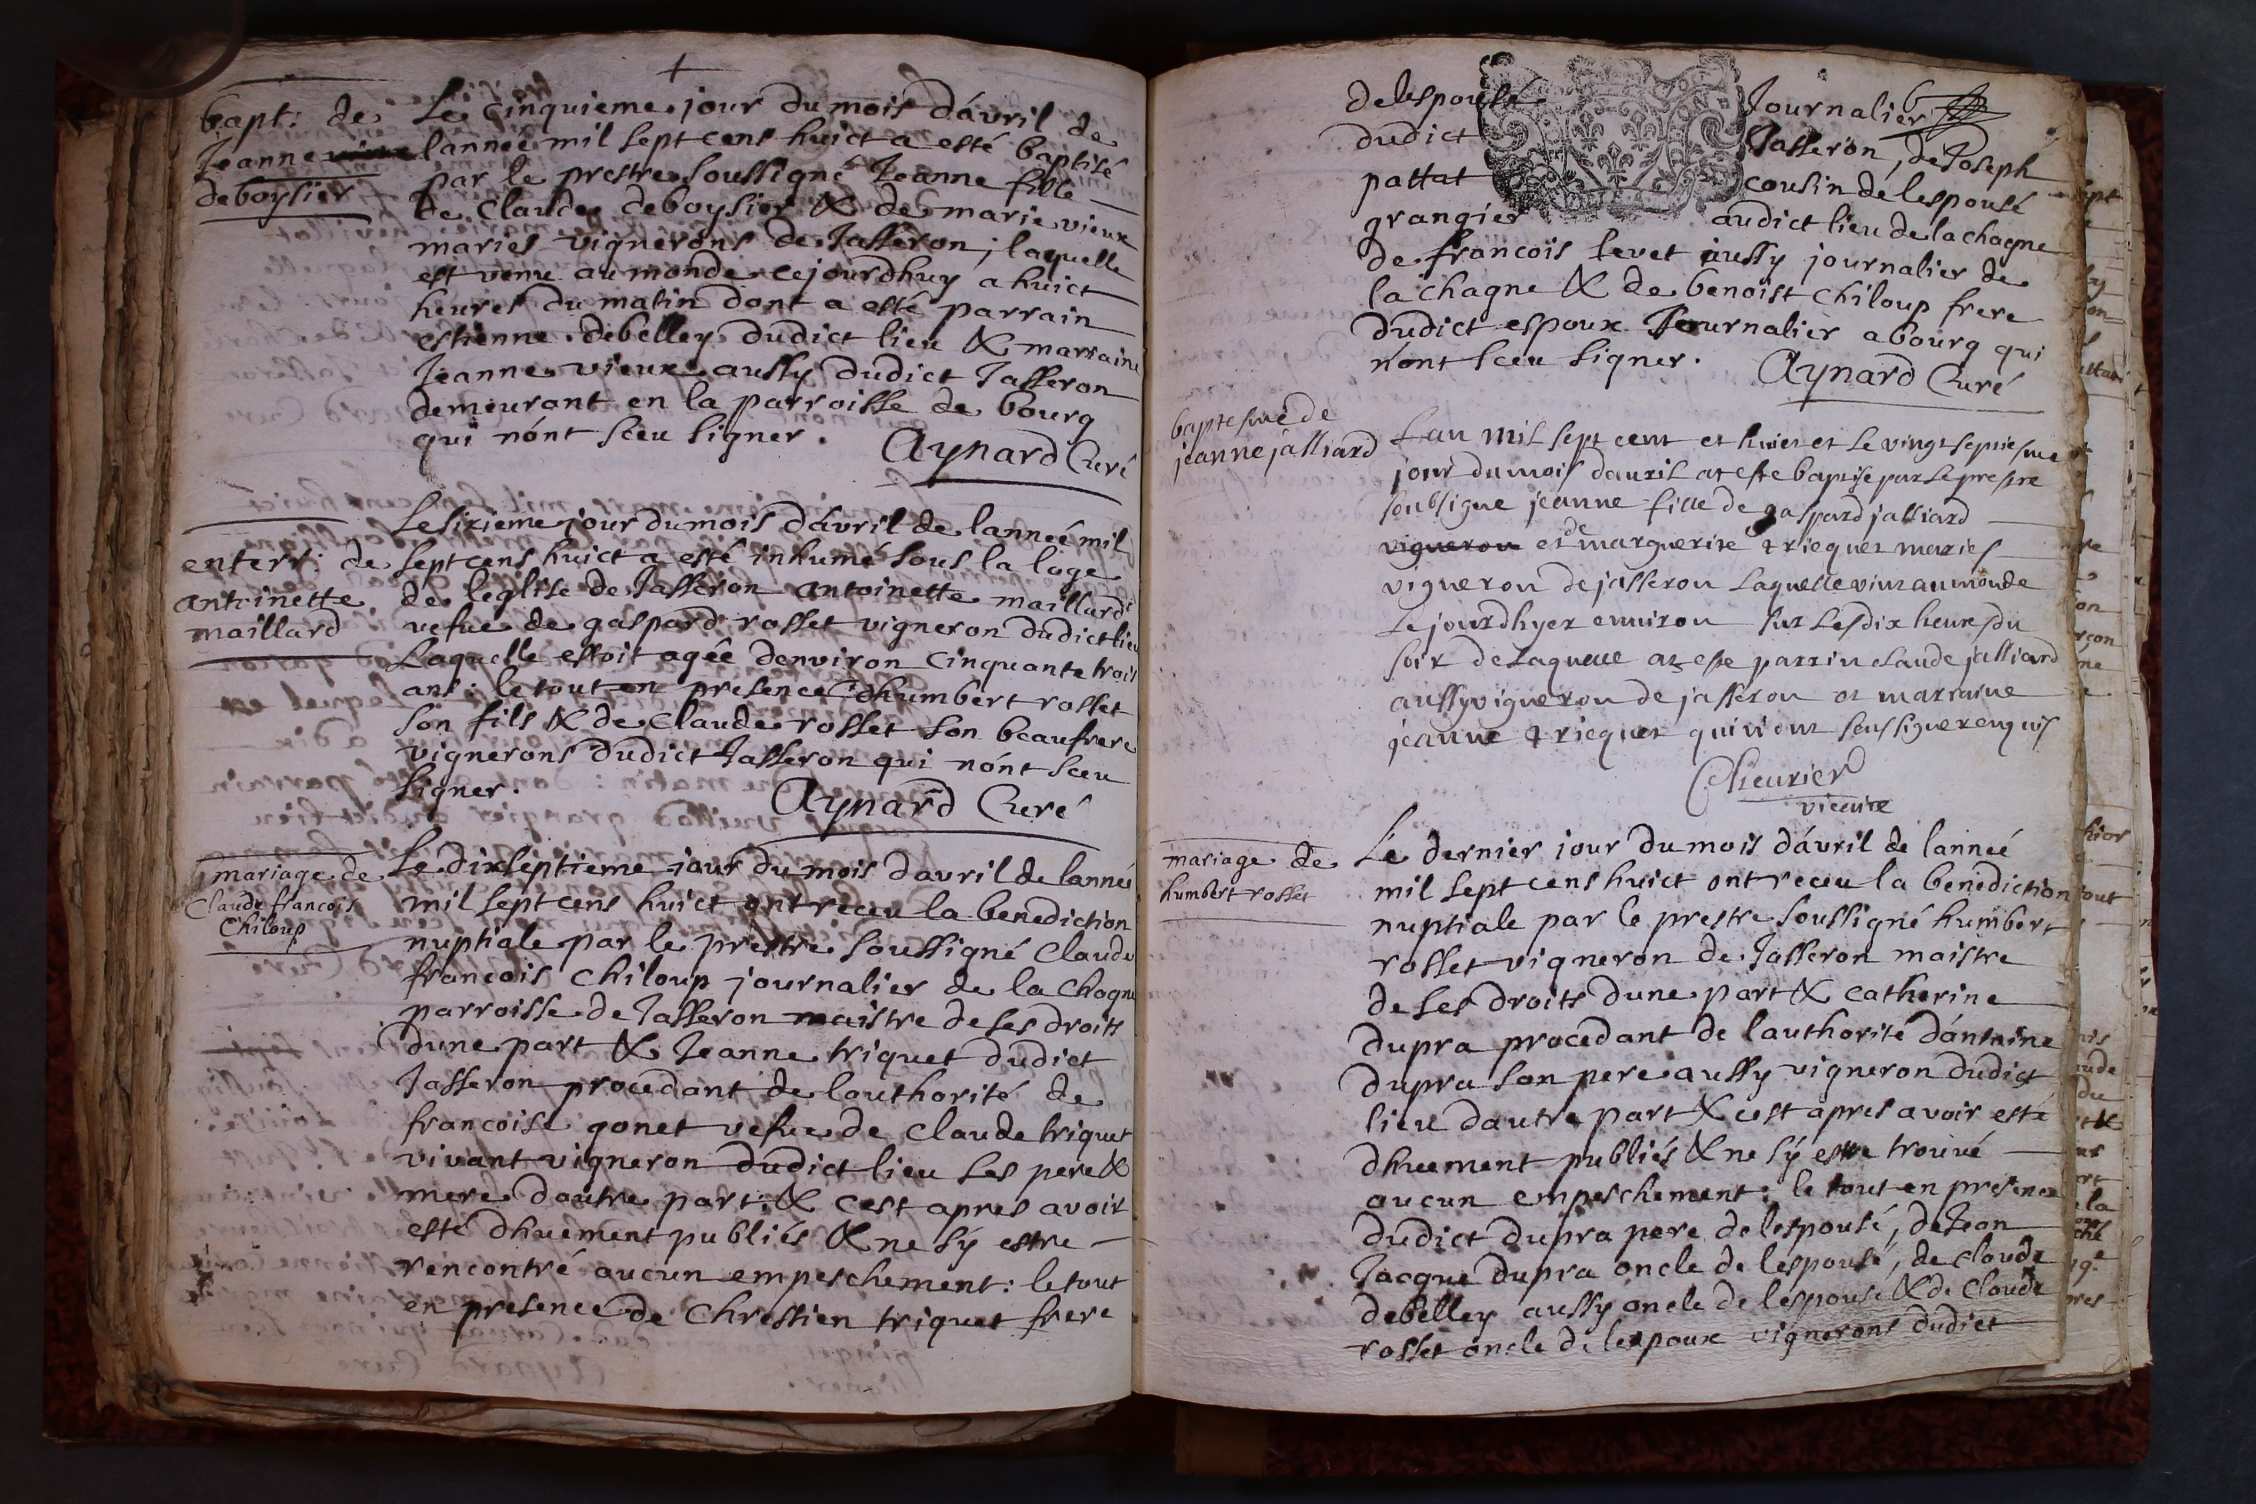 bapt: de
Jeanne
deboysier
Le cinquieme jour du mois d'avril de
lanneé mil sept cens huict a esté baptisé
par le prestre soussigné Jeanne fille
de Claude deboysier & de marie vieux
mariés vignerons de Jasseron, laquelle
est venu au monde cejourdhuy a huict
heures du matin dont a esté parrain
estienne debelley dudict lieu & marraine
Jeanne vieux aussy dudict Jasseron
demeurant en la parroisse de bourg
qui n'ont sceu signer.
Aynard Curé
enterr: de
antoinette
maillard
Le sixieme jour du mois d'avril de lanneé mil
sept cens huict a esté inhumé sous la loge
de leglise de Jasseron antoinette maillard
vefue de gaspard rosset vigneron dudict lieu
Laquelle estoit agée denviron cinquante trois
ans: le tout en presence dhumbert rosset
son fils & de Claude rosset son beaufrere
vignerons dudict Jasseron qui n'ont sceu
signer.
Aynard Curé
mariage de
Claude francois
Chiloup
Le dixseptieme jour du mois davril de lanneé
mil sept cens huict ont receu la benediction
nuptiale par le prestre soussigné Claude
francois Chiloup journalier de la Chagne
parroisse de Jasseron maistre de ses droits
dune part & Jeanne triquet dudict
Jasseron procedant de lauthorité de
francoise gonet vefue de Claude triquet
vivant vigneron dudict lieu ses pere &
mere dautre part: & cest apres avoir
esté dhuement publiés & ne sy estre
rencontré aucun empeschement: le tout
en presence de Chrestien triquet frere
de lespousé Journalier
dudict Jasseron, de Joseph
pattat cousin de lespousé
grangier audict lieu de la chagne
de francois levet aussy journalier de
la chagne & de benoist Chiloup frere
dudict espoux Journalier a bourg qui
n'ont sceu signer.
Aynard Curé
baptesme de
jeanne jalliard
Lan mil sept cent et huict et le vingt septiesme
jour du mois dauril at este baptise par le prestre
soubsigne jeanne fille de gaspard jalliard
vigneron et de marguerite triequet maries
vigneron de jasseron Laquelle vint au monde
Le jourdhyer enuiron sur les dix heures du
soir de Laquelle at este parrin claude jalliard
aussy vigneron de jasseron et marraine
jeanne triequet qui n'ont seu signer enquis
Cheurier
vicaire
mariage de
humbert rosset
Le dernier jour du mois d'avril de lanneé
mil sept cens huict ont receu la benediction
nuptiale par le prestre soussigné humbert
rosset vigneron de Jasseron maistre
de ses droits dune part & catherine
dupra procedant de lauthorité d'antoine
dupra son pere aussy vigneron dudict
lieu dautre part & cest apres avoir esté
dhuement publiés & ne sy estre trouvé
aucun empeschement: le tout en presence
dudict dupra pere de lespousé, de Jean
Jacque dupra oncle de lespousé, de claude
debelley aussy oncle de lespousé & de Claude
rosset oncle de lespoux vignerons dudict